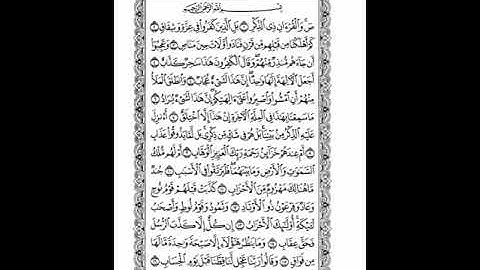 بِسْمِ ٱللَّهِ ٱلرَّحْمَٰنِ ٱلرَّحِيمِ
صٓ وَٱلْقُرْءَانِ ذِى ٱلذِّكْرِ ١ بَلِ ٱلَّذِينَ كَفَرُوا۟ فِى عِزَّةٍ وَشِقَاقٍ ٢
كَمْ أَهْلَكْنَا مِن قَبْلِهِم مِّن قَرْنٍ فَنَادَوا۟ وَّلَاتَ حِينَ مَنَاصٍ ٣ وَعَجِبُوٓا۟
أَن جَآءَهُم مُّنذِرٌ مِّنْهُمْ وَقَالَ ٱلْكَٰفِرُونَ هَٰذَا سَٰحِرٌ كَذَّابٌ ٤
أَجَعَلَ ٱلْءَالِهَةَ إِلَٰهًا وَٰحِدًا إِنَّ هَٰذَا لَشَىْءٌ عُجَابٌ ٥ وَٱنطَلَقَ ٱلْمَلَأُ
مِنْهُمْ أَنِ ٱمْشُوا۟ وَٱصْبِرُوا۟ عَلَىٰٓ ءَالِهَتِكُمْ إِنَّ هَٰذَا لَشَىْءٌ يُرَادُ ٦
مَا سَمِعْنَا بِهَٰذَا فِى ٱلْمِلَّةِ ٱلْءَاخِرَةِ إِنْ هَٰذَآ إِلَّا ٱخْتِلَٰقٌ ٧ أَءُنزِلَ
عَلَيْهِ ٱلذِّكْرُ مِنۢ بَيْنِنَا بَلْ هُمْ فِى شَكٍّ مِّن ذِكْرِى بَل لَّمَّا يَذُوقُوا۟ عَذَابِ
٨ أَمْ عِندَهُمْ خَزَآئِنُ رَحْمَةِ رَبِّكَ ٱلْعَزِيزِ ٱلْوَهَّابِ ٩ أَمْ لَهُم مُّلْكُ
ٱلسَّمَٰوَٰتِ وَٱلْأَرْضِ وَمَا بَيْنَهُمَا فَلْيَرْتَقُوا۟ فِى ٱلْأَسْبَٰبِ ١٠ جُندٌ
مَّا هُنَالِكَ مَهْزُومٌ مِّنَ ٱلْأَحْزَابِ ١١ كَذَّبَتْ قَبْلَهُمْ قَوْمُ نُوحٍ
وَعَادٌ وَفِرْعَوْنُ ذُو ٱلْأَوْتَادِ ١٢ وَثَمُودُ وَقَوْمُ لُوطٍ وَأَصْحَٰبُ
لْـَٔيْكَةِ أُو۟لَٰٓئِكَ ٱلْأَحْزَابُ ١٣ إِن كُلٌّ إِلَّا كَذَّبَ ٱلرُّسُلَ
فَحَقَّ عِقَابِ ١٤ وَمَا يَنظُرُ هَٰٓؤُلَآءِ إِلَّا صَيْحَةً وَٰحِدَةً مَّا لَهَا
مِن فَوَاقٍ ١٥ وَقَالُوا۟ رَبَّنَا عَجِّل لَّنَا قِطَّنَا قَبْلَ يَوْمِ ٱلْحِسَابِ ١٦